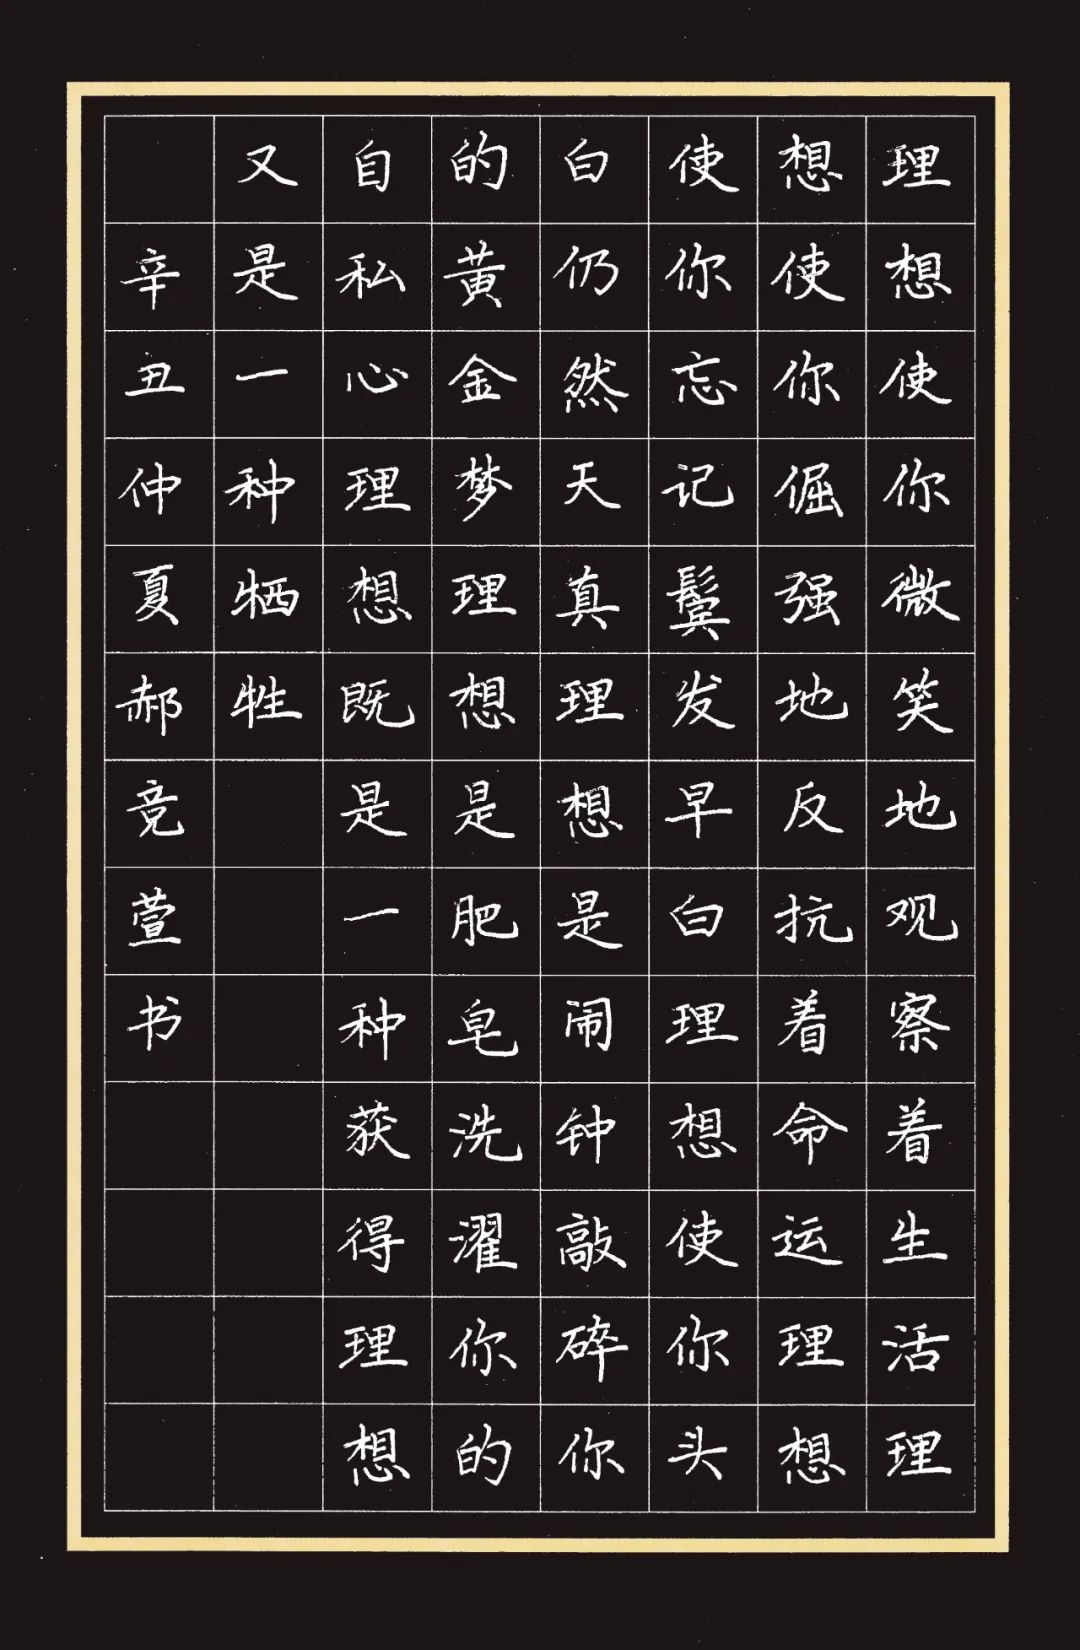 理想使你微笑地观察着生活理
想使你倔强地反抗着命运理想
使你忘记鬓发早白理想使你头
白仍然天真理想是闹钟敲碎你
的黄金梦理想是肥皂洗濯你的
自私心理想既是一种获得理想
又是一种牺牲
辛丑仲夏郝竞萱书